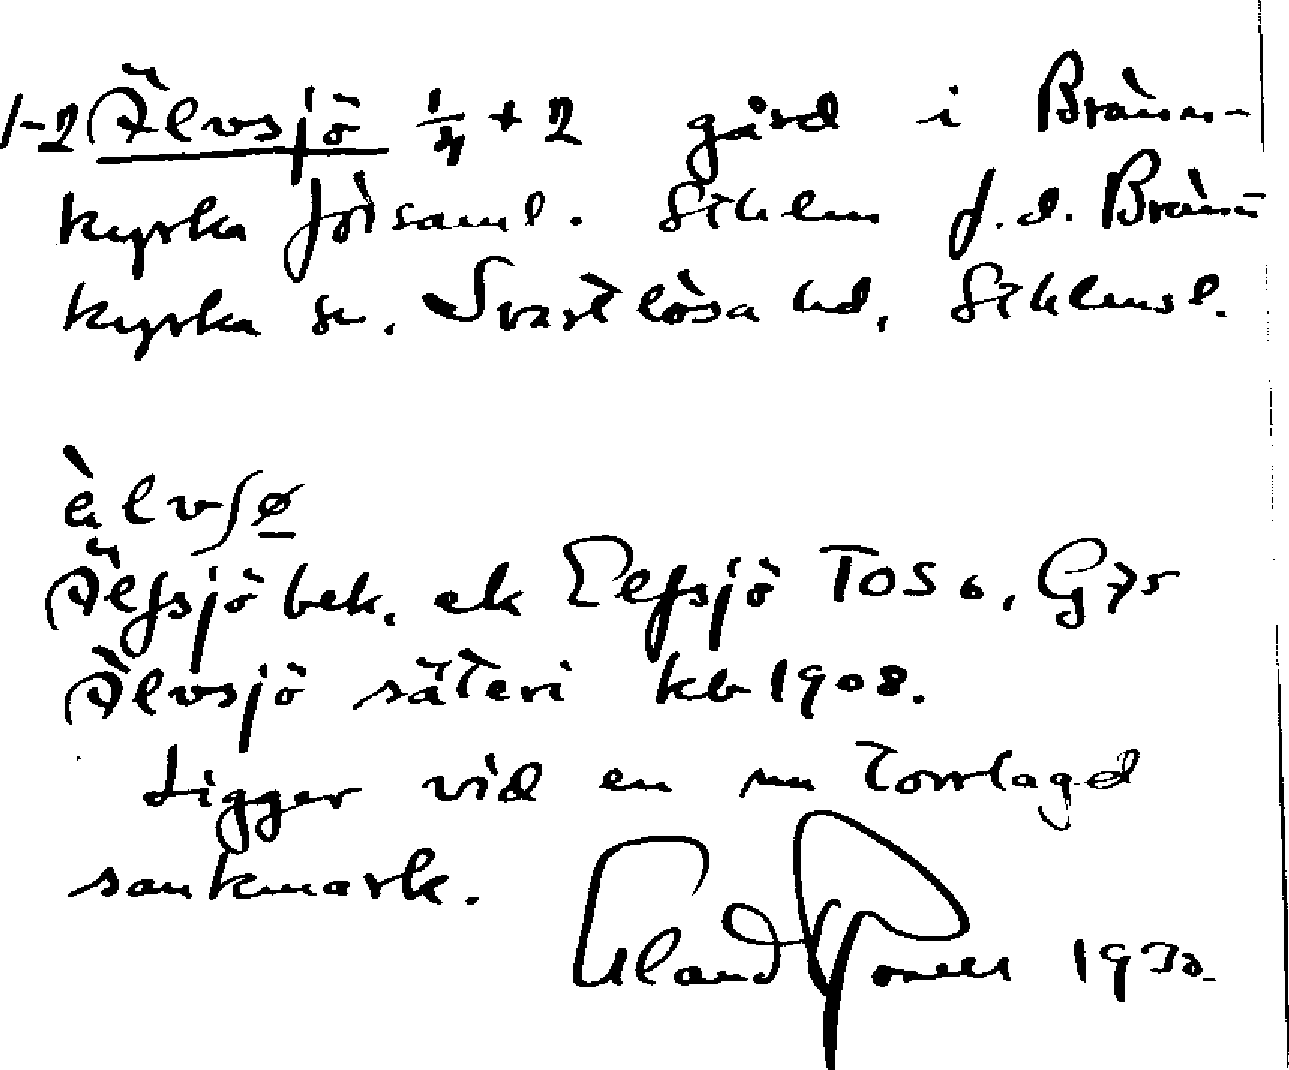 1-2 Älvsjö 1/4 + 2 gård i Bränn-
kyrka förs​aml. Sthlm f.d. Bränn-
kyrka sn. Svartlösa hd, Sthlmsl.
èlvʃø
Älfsjö bek. ek Elfsjö TOS 6, G75
Älvsjö säteri kb 1908.
Ligger vid en nu torrlagd
sankmark.
1930.